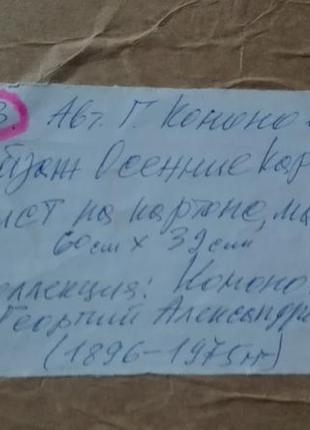 3. Авт. Г. Кононо
йзаж Осенние кар
лст на картоне, ма
60 см х 32 см
ллекция: Кононо
Георгий Александро
(1896–1975 гг)